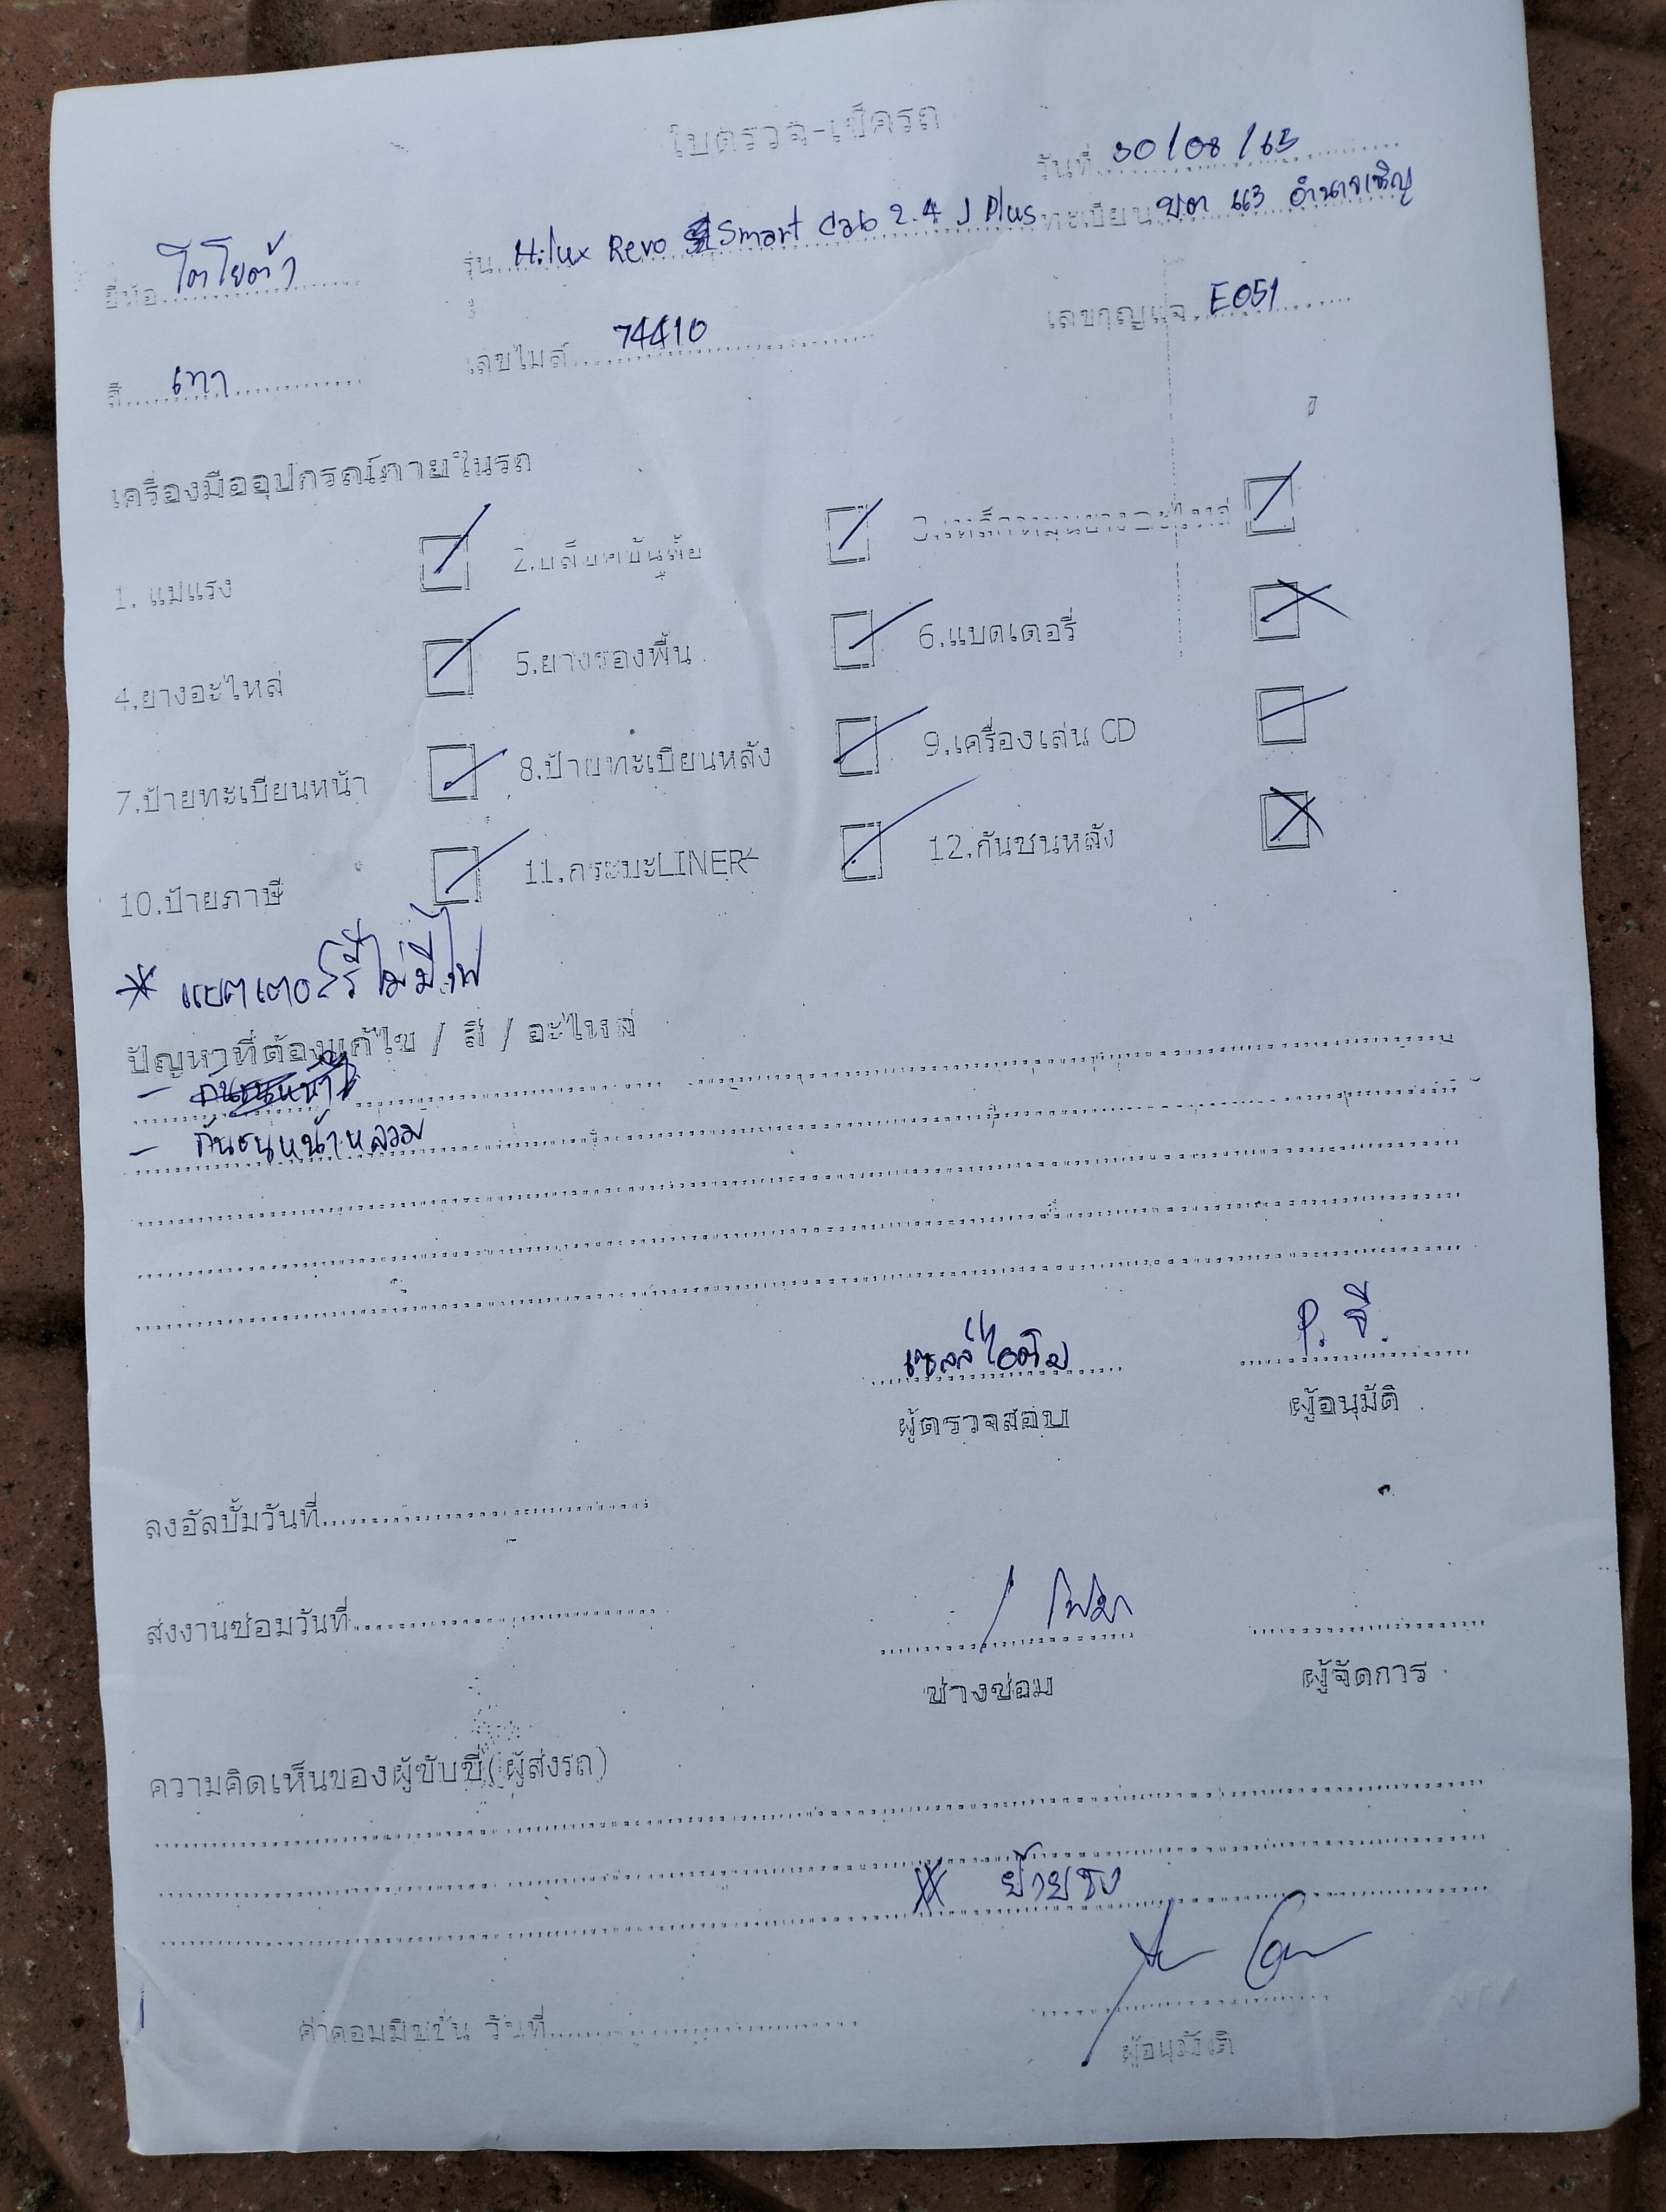 ใบตรวจ-เช็ครถ
วันที่ 30/08/63
ยี่ห้อ โตโยต้า รุ่น Hilux Revo Smart Cab 2.4 J Plus ทะเบียน บต 663 อำนาจเจริญ
สี เทา เลขไมล์ 74410 เลขกุญแจ E051
เครื่องมืออุปกรณ์ภายในรถ
1. แม่แรง 2.บล็อคขันล้อ 3.เหล็กหมุนยางอะไหล่
4.ยางอะไหล่ 5.ยางรองพื้น 6.แบตเตอรี่
7.ป้ายทะเบียนหน้า 8.ป้ายทะเบียนหลัง 9.เครื่องเล่น CD
10.ป้ายภาษี 11.กระบะLINER 12.กันชนหลัง
* แบตเตอรี่ไม่มีไฟ
ปัญหาที่ต้องแก้ไข / สี / อะไหล่
- กันชนหน้า
- กันชนหน้าหลวม
เซลล์ไอติม P. จี.
ผู้ตรวจสอบ ผู้อนุมัติ
ลงอัลบั้มวันที่
ส่งงานซ่อมวันที่
ช่างซ่อม ผู้จัดการ
ความคิดเห็นของผู้ขับขี่(ผู้ส่งรถ)
* ย้ายธง
ค่าคอมมิชชั่น วันที่
ผู้อนุมัติ